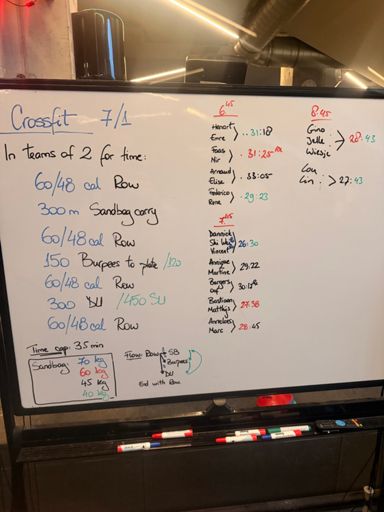 Crossfit 7/1
In teams of 2 for time:
60/48 cal Row
300 m Sandbag carry
60/48 cal Row
150 Burpees to plate /120
60/48 cal Row
300 DU /450 SU
60/48 cal Row
Time cap: 35 min
Sandbag: 70 kg
60 kg
45 kg
40 kg
Flow: Row SB
Burpees
DU
End with Row
6 45
31:18
Faas
Nir
31:25
Arnaud
Elise
33:05
Federico
Rene
29:23
7 45
Dannick
Vincent
26:30
Annique
Martine
29:22
Burgers
Cup
30:12
Bastiaan
Matthijs
27:38
Anneloes
Marc
28:45
8:45
Gino
Jelle
Wiesje
28:43
Lou
Lin
27:43